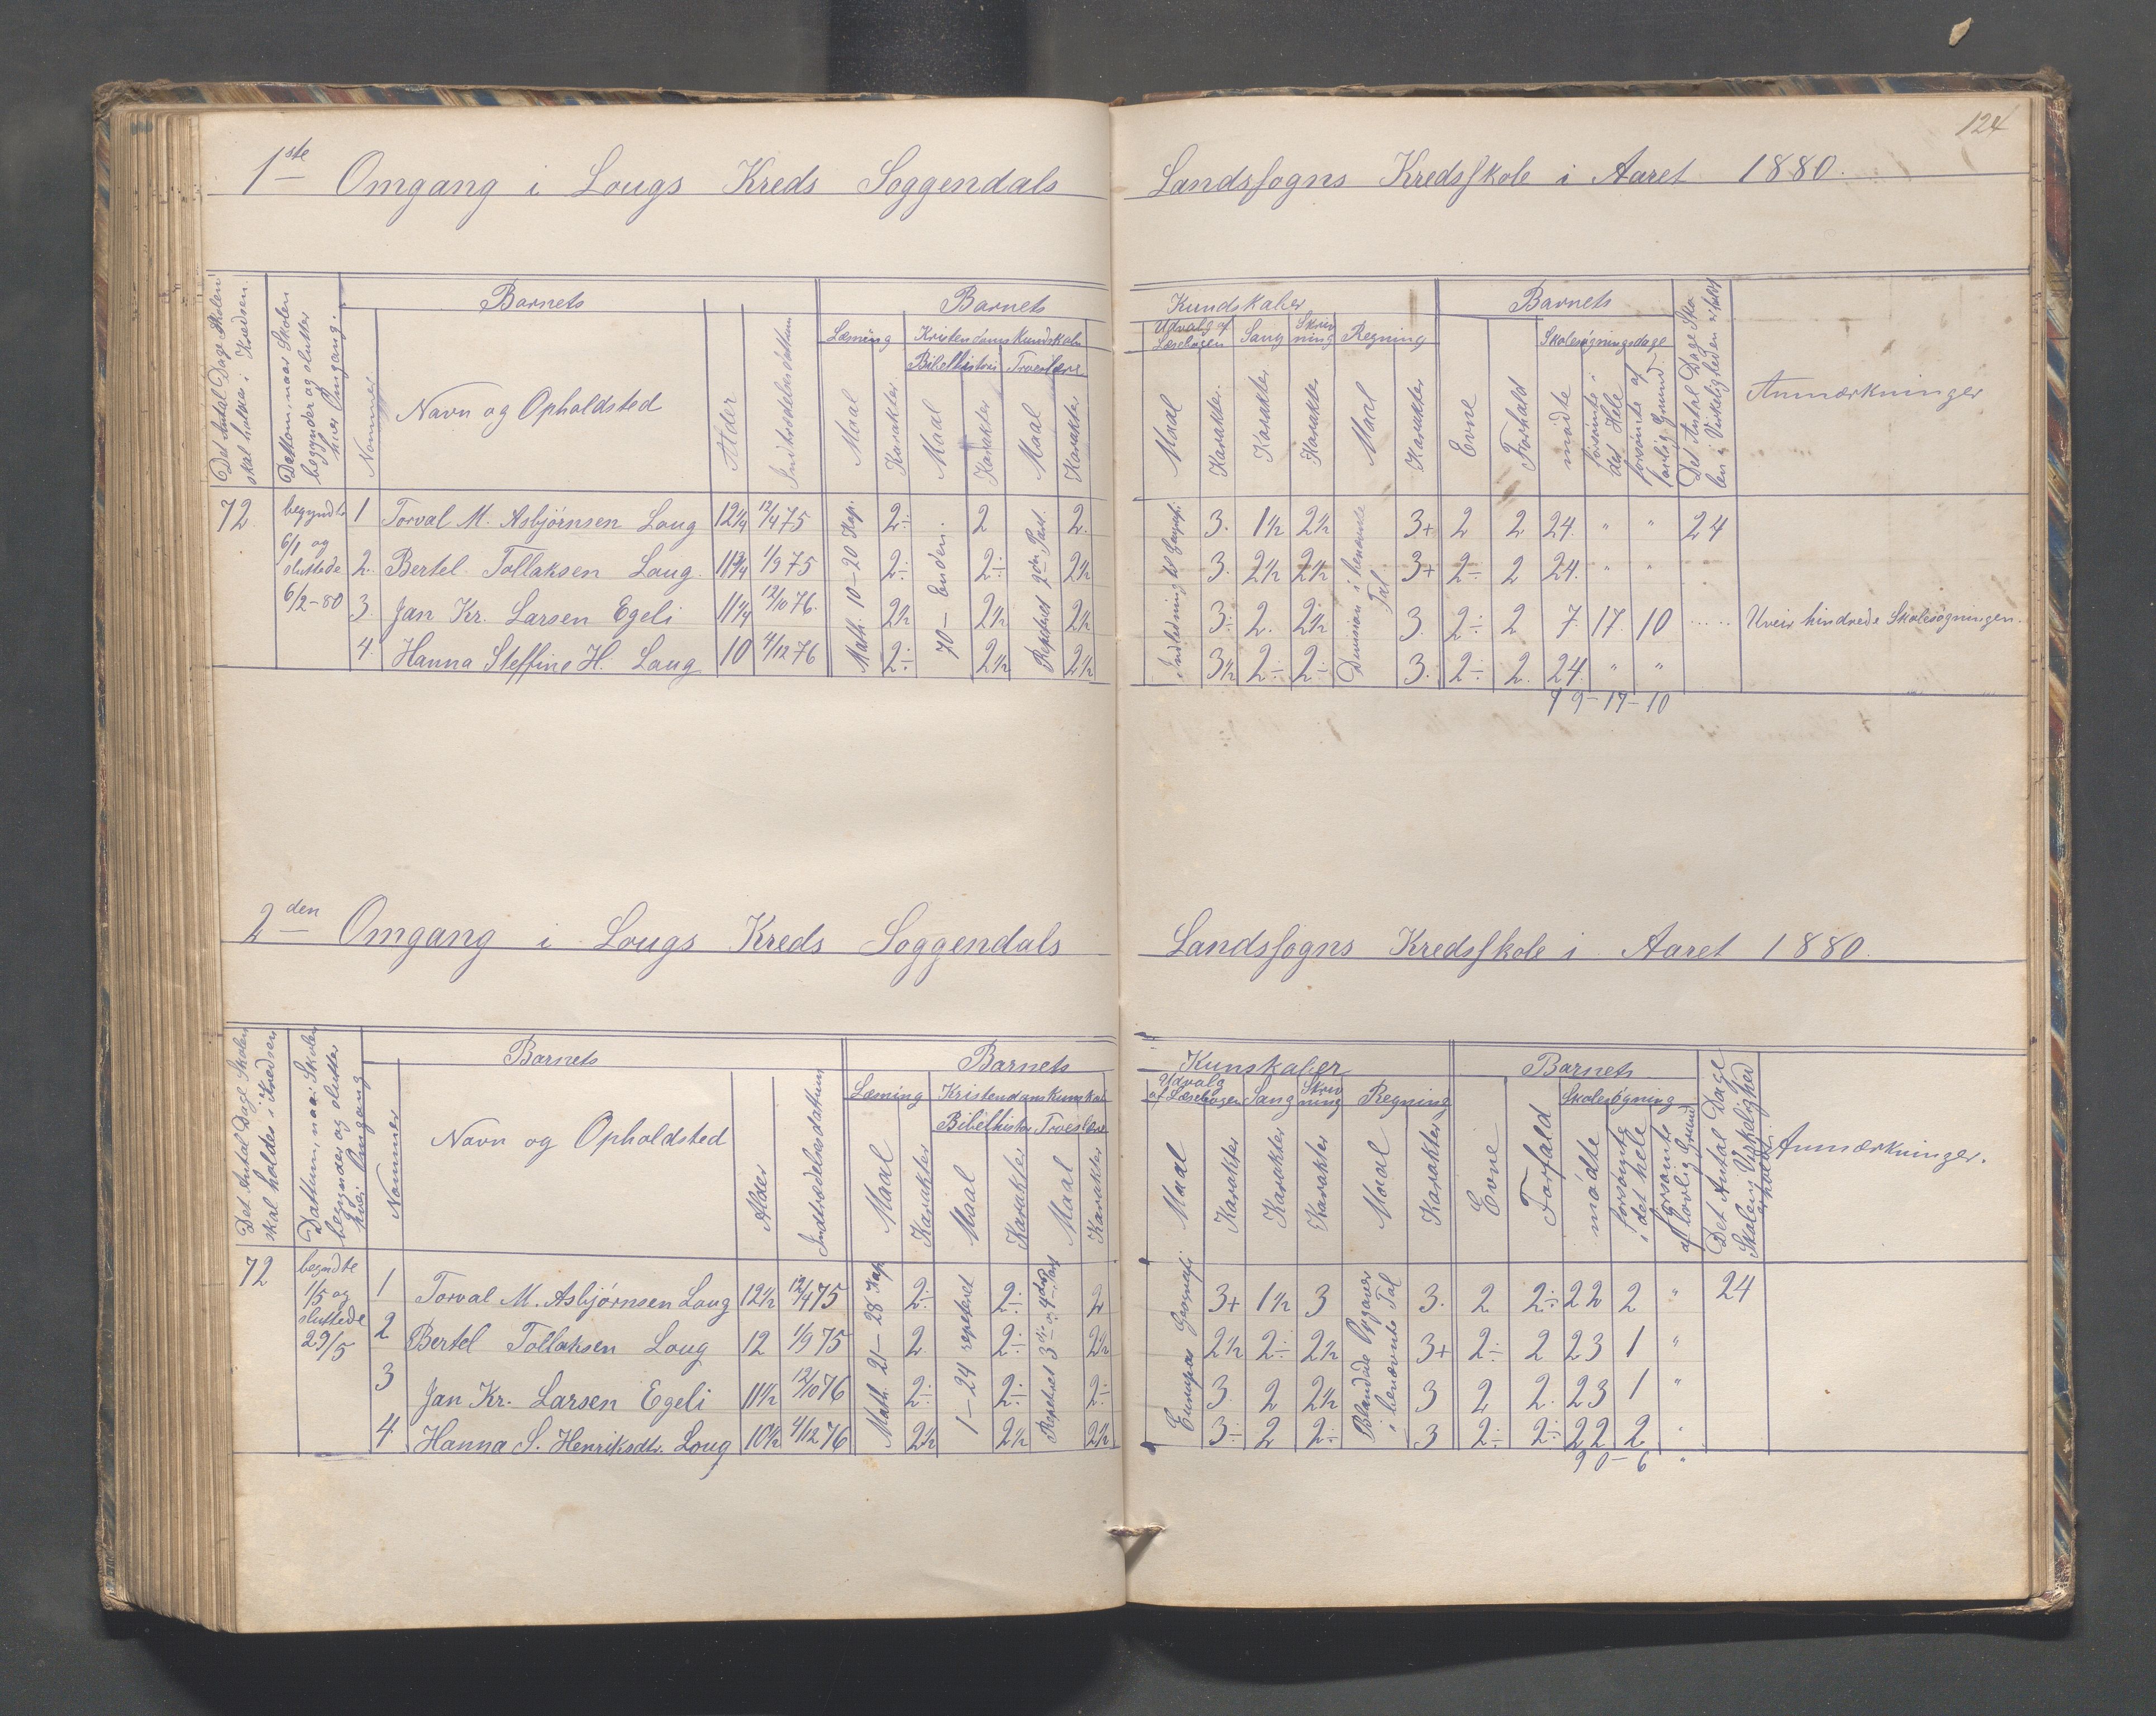 124
1ste Omgang i Lougs Kreds Soggendals Landssogns Kredsskole i Aaret 1880.
Det Antal Dage Skolen skal holdes i Kredsen.
Datum, naar Skolen begynder og slutter hver Omgang.
Barnets
Nommer
Navn og Opholdsted
Alder
Indtrædelsesdattum
Barnets Kundskaber
Læsning
Maal
Karakter
Kristendoms Kundskaber
Bibelhistorie
Maal
Karakter
Troeslære
Maal
Karakter
Udvalg af Læsebogen
Maal
Karakter.
Sang
Karakter
Skrivning
Karakter
Regning
Maal
Karakter
Barnets
Evne
Forhold
Skolesøgningsdage
mødte
forsømte i det Hele
forsømte af lovlig Grund.
Det Antal Dage Skolen i Virkeligheden er holdt
Anmærkninger
72. begyndte 6/1 og sluttede 6/2-80
Math. 10-20 Kap.
70- Enden.
Repeteret 2den Part.
Indledning til Geografi
Division i benævnte Tal.
1 Torval M. Asbjørnsen Loug 12 1/4 12/4 75 2÷ 2 2. 3. 1½ 2½ 3+ 2 2 24. " " 24
2. Bertel Tollaksen Loug. 11 3/4 1/9 75 2÷ 2÷ 2½ 3. 2½ 2½ 3+ 2÷ 2 24. " "
3. Jan Kr. Larsen Egeli 11 1/4 12/10 76. 2½ 2½ 2½ 3÷ 2. 2½ 3. 2÷ 2 7. 17. 10 Uveir hindrede Skolesøgningen.
4. Hanna Steffine H. Loug 10 4/12 76 2÷ 2½ 2½ 3½ 2÷ 2÷ 3. 2÷ 2. 24. " "
79-17-10
2den Omgang i Lougs Kreds Soggendals Landssogns Kredsskole i Aaret 1880.
Det Antal Dage Skolen skal holdes i Kredsen
Dattum, naar Skolen begynder og slutter hver Omgang
Barnets
Nommer
Navn og Opholdsted
Alder
Indtrædelsesdattum
Barnets Kunskaber
Læsning
Maal
Karakter
Kristendoms Kunskab
Bibelhistor
Maal
Karakter
Troeslære
Maal
Karakter
Udvalg af Læsebogen
Maal
Karakter
Sang
Karakter
Skrivning
Karakter
Regning
Maal
Karakter
Barnets
Evne
Forfald
Skolesøgning
mødte
forsømte i det hele
forsømte af lovlig Grund
Det Antal Dage Skolen i Virkelighed er holdt
Anmærkninger.
72 begyndte 1/5 og sluttede 29/5
Math. 21-28 Kap
1-24 repeteret
Repeteret 3die og 4de Part
Europas Geografi
Blandede Opgaver i benævnte Tal
1 Torval M. Asbjørnsen Loug 12½ 12/4 75 2÷ 2÷ 2 3+ 1½ 3 3. 2 2÷ 22 2 " 24
2 Bertel Tollaksen Loug 12 1/9 75 2. 2÷ 2½ 2½ 2÷ 2½ 3+ 2÷ 2 23 1 "
3 Jan Kr. Larsen Egeli 11½ 12/10 76 2÷ 2÷ 2÷ 3. 2 2½ 3 2 2. 23 1 "
4 Hanna S. Henriksdtr. Loug 10½ 4/12 76 2½ 2½ 2½ 3÷ 2 2÷ 3 2÷ 2÷ 22 2 "
90-6 "